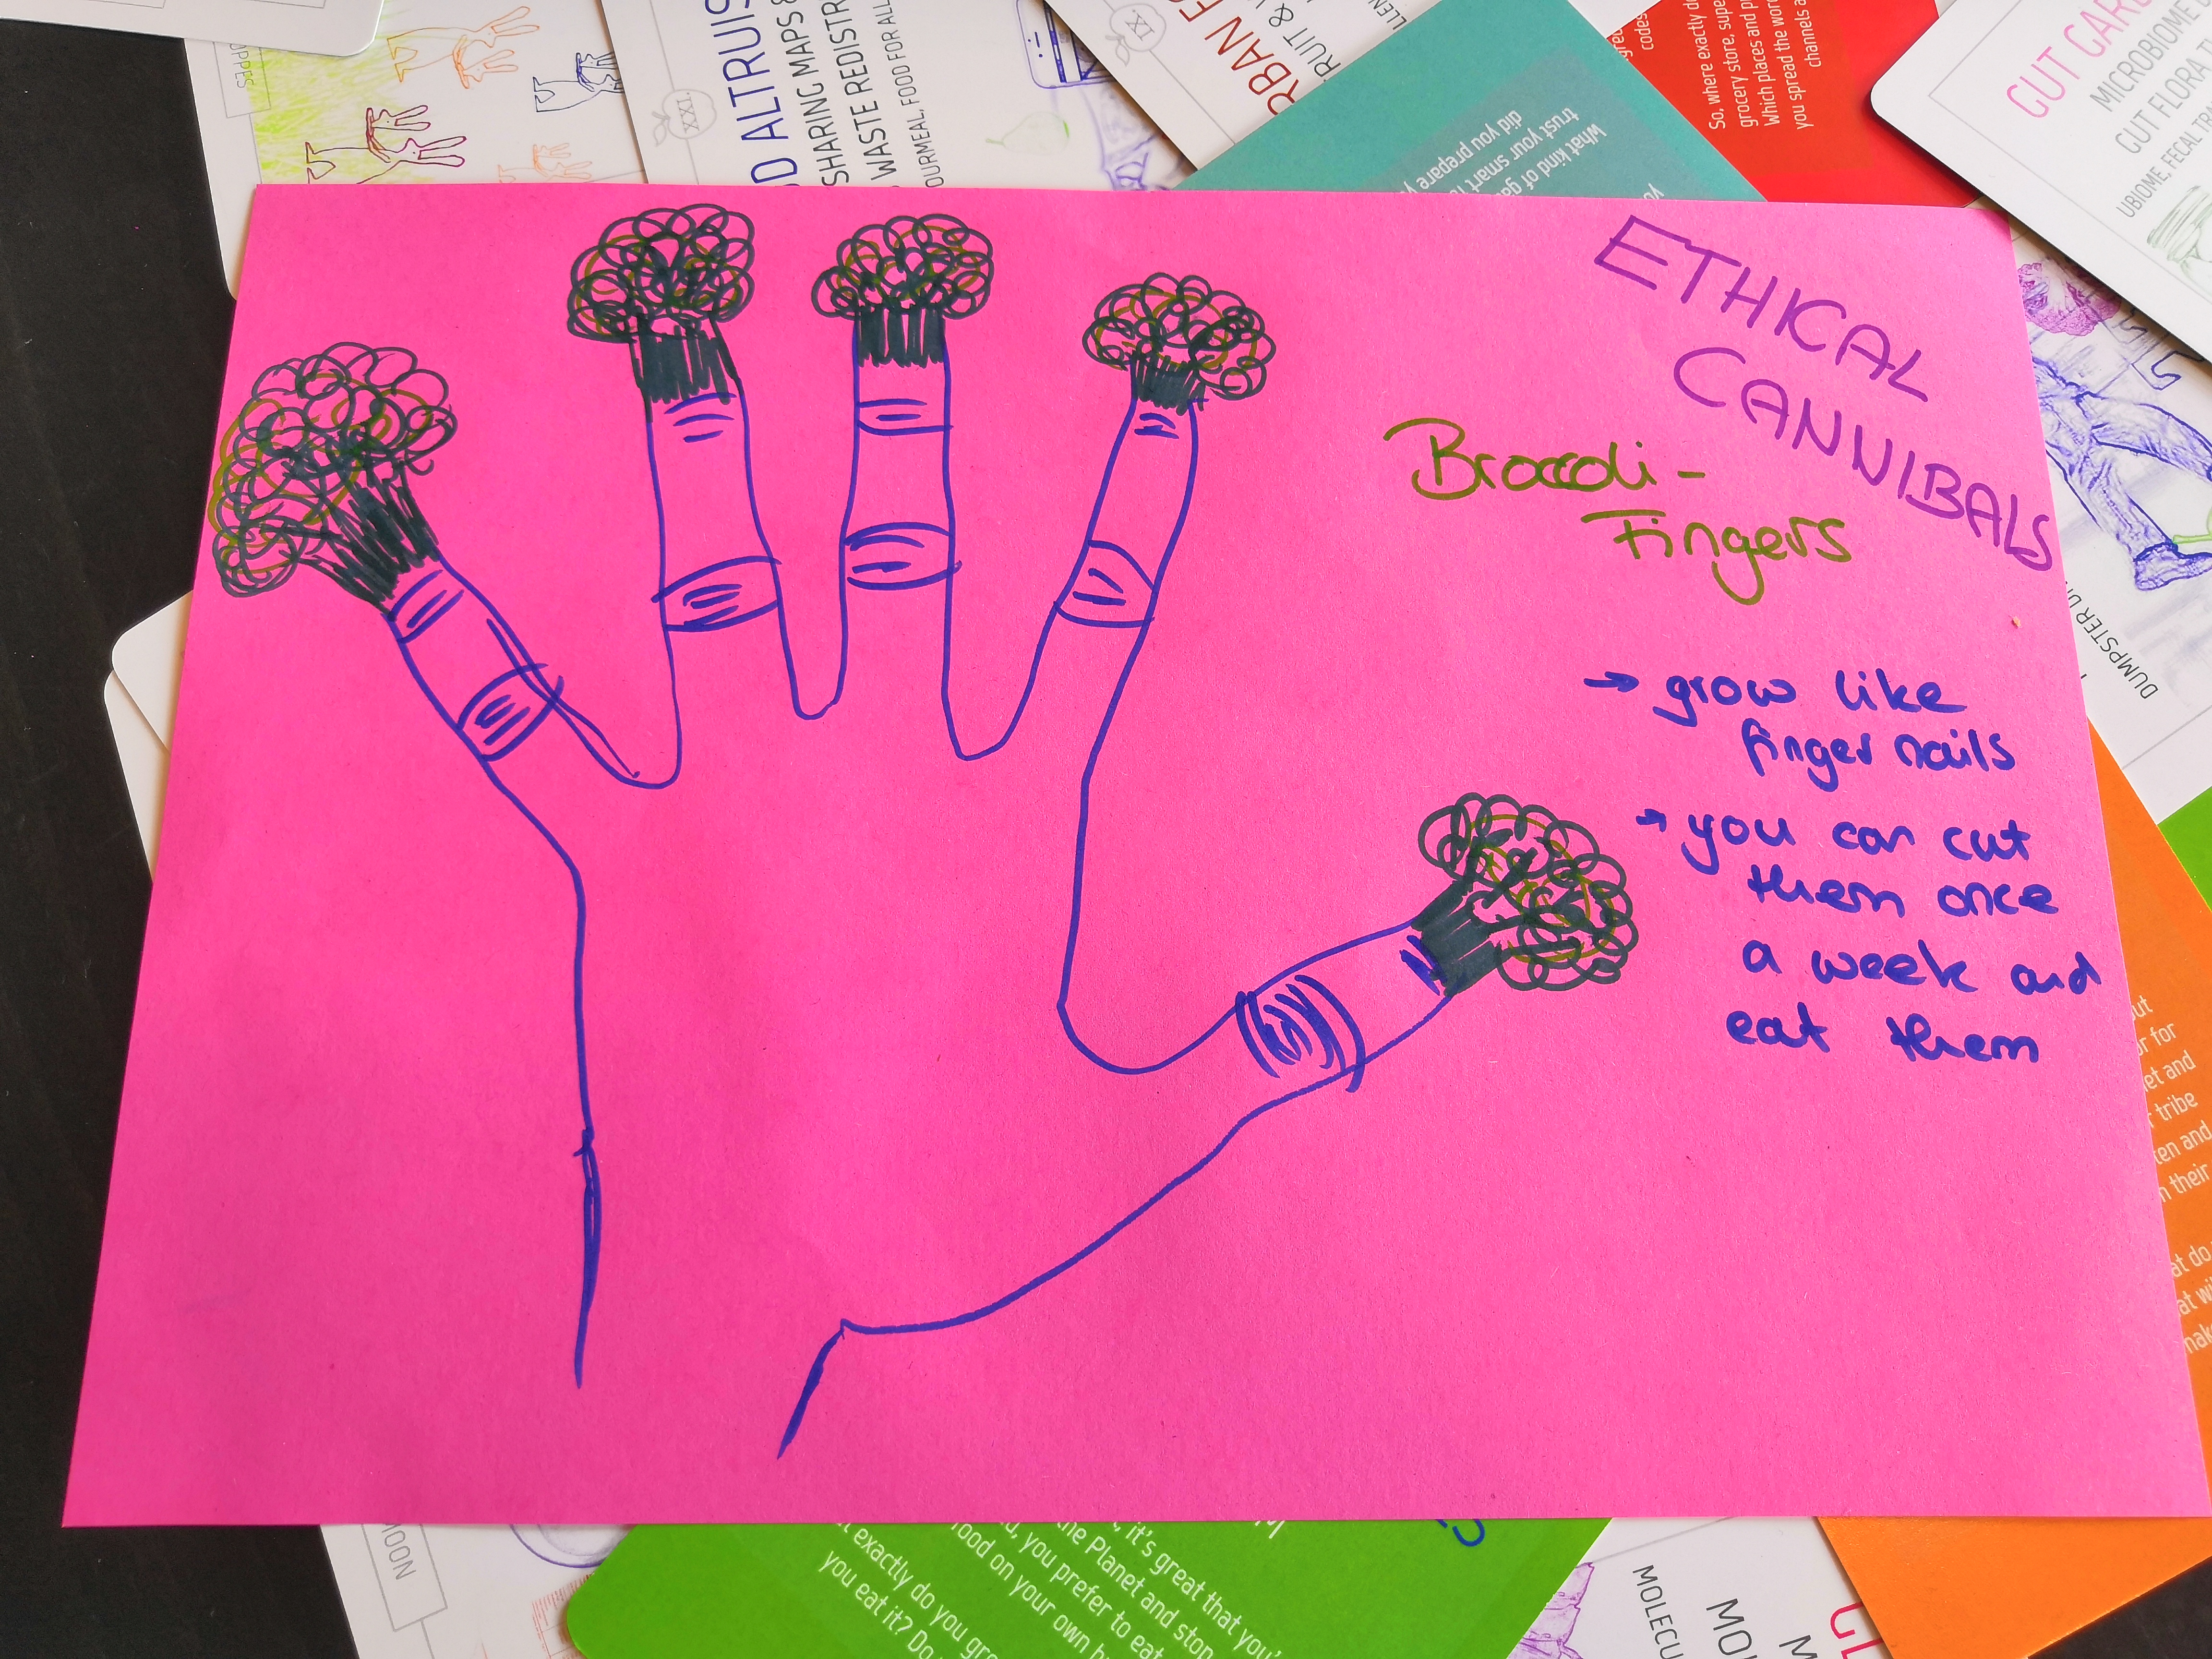 ETHICAL
CANNIBALS
Broccoli-
Fingers
→ grow like
finger nails
→ you can cut
them once
a week and
eat them
XXI.
D ALTRUIS
SHARING MAPS &
WASTE REDISTR
OURMEAL, FOOD FOR ALL
IX.
RBAN FO
RUIT &
What kind of ga
trust your smart
did you prepare y
codes
So, where exactly d
grocery store, supe
Which places and p
you spread the wor
channels a
GUT GARD
MICROBIOME
GUT FLORA T
UBIOME, FECAL TR
DUMPSTER DI
MOON
it's great that you'
the Planet and stop
you prefer to eat
food on your own b
t exactly do you gro
you eat it? Do
MOLECU
out
or for
et and
tribe
ten and
n their
at do
at wi
mak